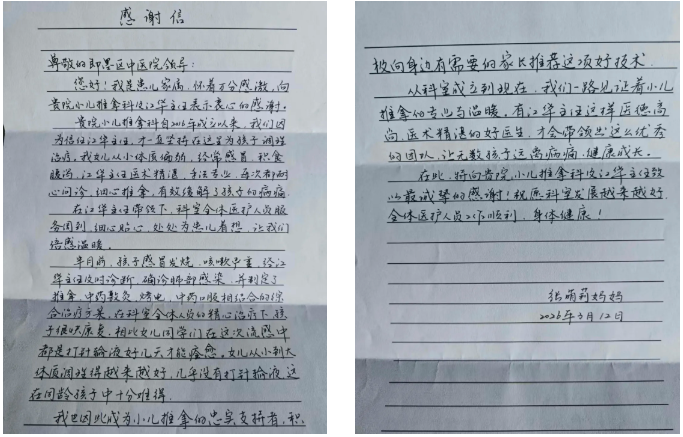 感谢信
尊敬的即墨区中医院领导:
您好!我是患儿家属,怀着万分感激,向
贵院小儿推拿科及江华主任表示衷心的感谢。
贵院小儿推拿科自2016年成立以来,我们因
为信任江华主任,才一直坚持在这里为孩子调理
治疗。我女儿从小体质偏弱,经常感冒、积食
腹泻,江华主任医术精湛,手法专业,每次都耐
心问诊、细心推拿,有效缓解了孩子的病痛。
在江华主任带领下,科室全体医护人员服
务周到,细心贴心,处处为患儿着想,让我们
倍感温暖。
半月前,孩子感冒发烧、咳嗽严重,经江
华主任及时诊断,确诊肺部感染,并制定了
推拿、中药敷灸、烤电、中药口服相结合的综
合治疗方案,在科室全体人员的精心治疗下,孩
子很快康复,相比女儿同学们在这次流感中
都是打针输液好几天才能痊愈。女儿从小到大
体质调理得越来越好,几乎没有打针输液,这
在同龄孩子中十分难得。
我也因此成为小儿推拿的忠实支持者,积
极向身边有需要的家长推荐这项好技术。
从科室成立到现在,我们一路见证着小儿
推拿的专业与温暖,有江华主任这样医德高
尚、医术精湛的好医生,才会带领出这么优秀
的团队,让无数孩子远离病痛、健康成长。
在此,特向贵院小儿推拿科及江华主任致
以最诚挚的感谢!祝愿科室发展越来越好,
全体医护人员工作顺利,身体健康!
张萌莉妈妈
2026年3月12日